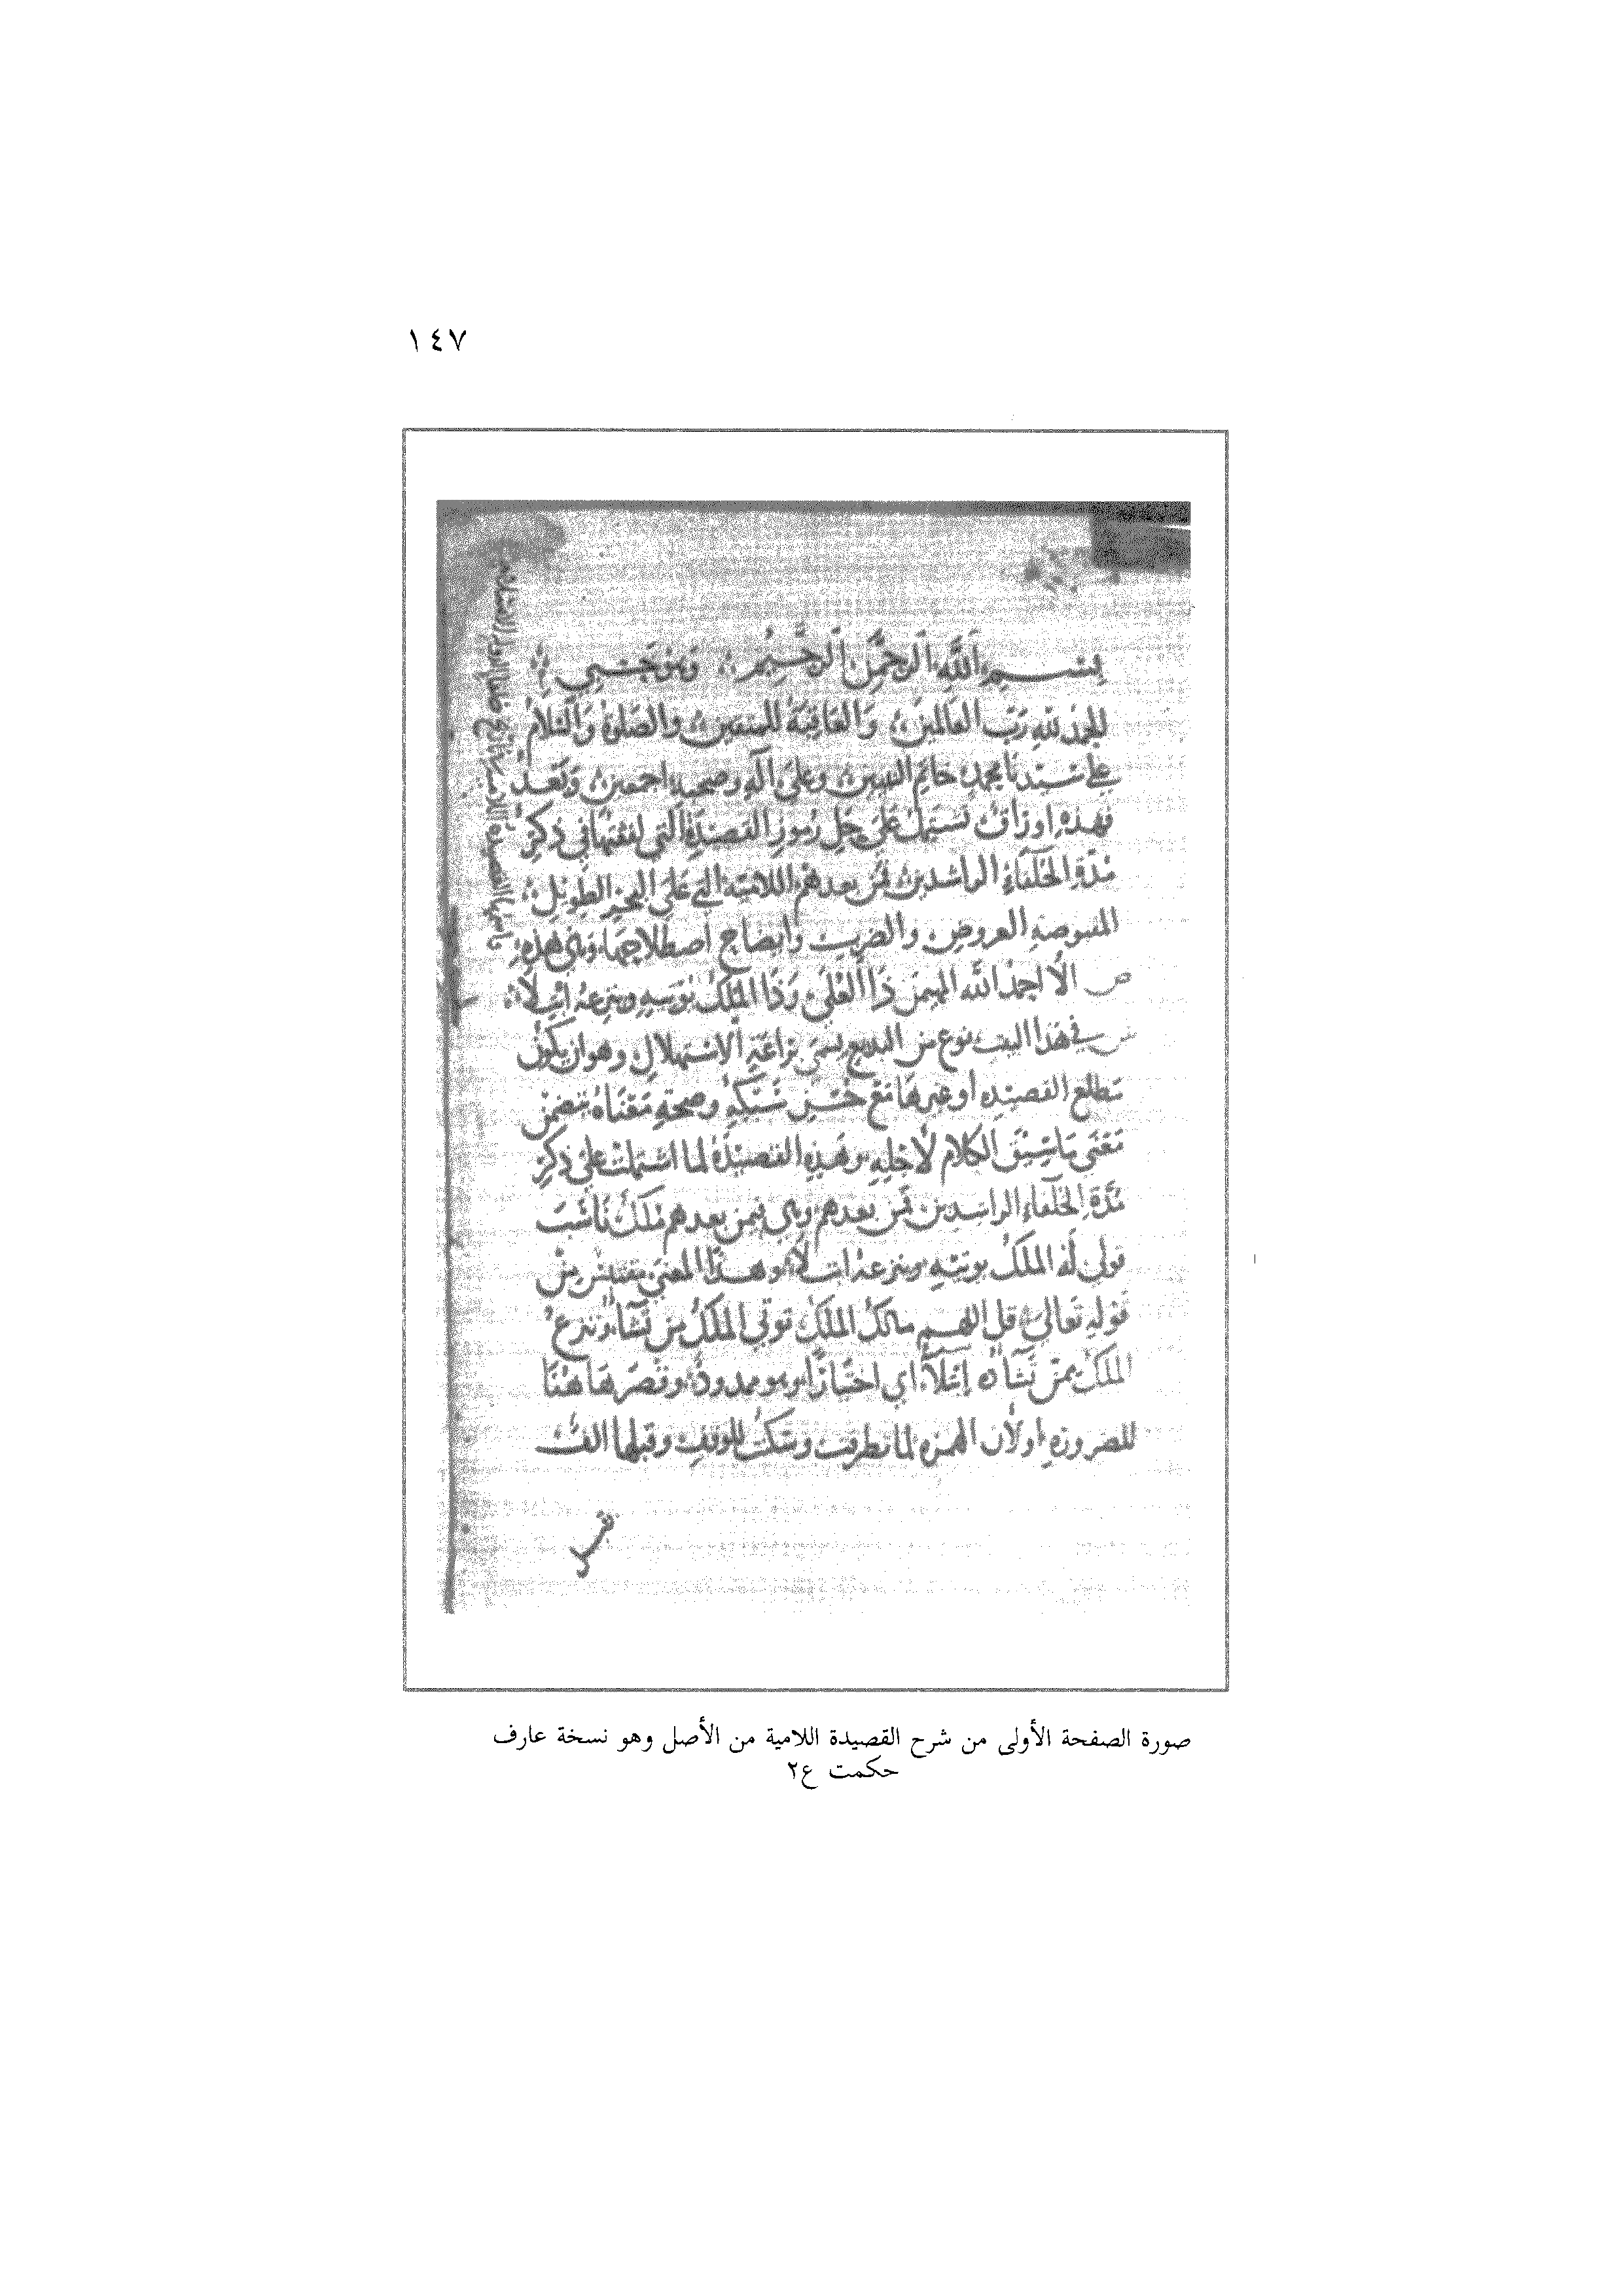 ١٤٧
بسم الله الرحمن الرحيم وهو حسبي
الحمد لله رب العالمين والعاقبة للمتقين والصلاة والسلام
على سيدنا محمد خاتم النبيين وعلى آله وصحبه اجمعين وبعد
فهذه اوراق تشتمل على حل رموز القصيدة التي في ذكر
مدة الخلفاء الراشدين فمن بعدهم اللامية التي على البحر الطويل
المقبوضة العروض والضرب وايضاح اصطلاحها وهي هذه
ص الا احمد الله المهيمن ذا العلى وذا الملك يؤتيه وينزعه ابتلا
ش في هذا البيت نوع من البديع يسمى براعة الاستهلال وهو ان يكون
مطلع القصيده أو غيرها مع حسن سبكه وصحة معناه يتضمن
معنى ما سيق الكلام لاجله وهذه القصيدة لما اشتملت على ذكر
مدة الخلفاء الراشدين فمن بعدهم وهي فيمن بعدهم ملك ناسب
قولي له الملك يوتيه وينزعه ابتلا وهذا المعنى مقتبس من
قوله تعالى قل اللهم مالك الملك توتي الملك من تشاء وتنزع
الملك ممن تشاء ابتلاء اي اختبارا وهو ممدود وقصرها هنا
للضرورة او لان الهمزه لما تطرفت وسكت للوقف وقبلها الف
صورة الصفحة الأولى من شرح القصيدة اللامية من الأصل وهو نسخة عارف
حكمت ع٢